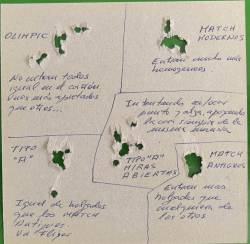 OLIMPIC
No entran todos
igual en el cartón.
Unos más apretados
que otros...
MATCH
MODERNOS
Entran mucho más
homogéneos
Intentando enfocar
punto y alza, apoyando
la con siempre de
misma manera
TIPO
"A"
Igual de holgados
que los MATCH
Antiguos
TIPO "A"
MIRAS
ABIERTAS
MATCH
ANTIGUOS
Entran más
holgados que
cualquiera de
los otros